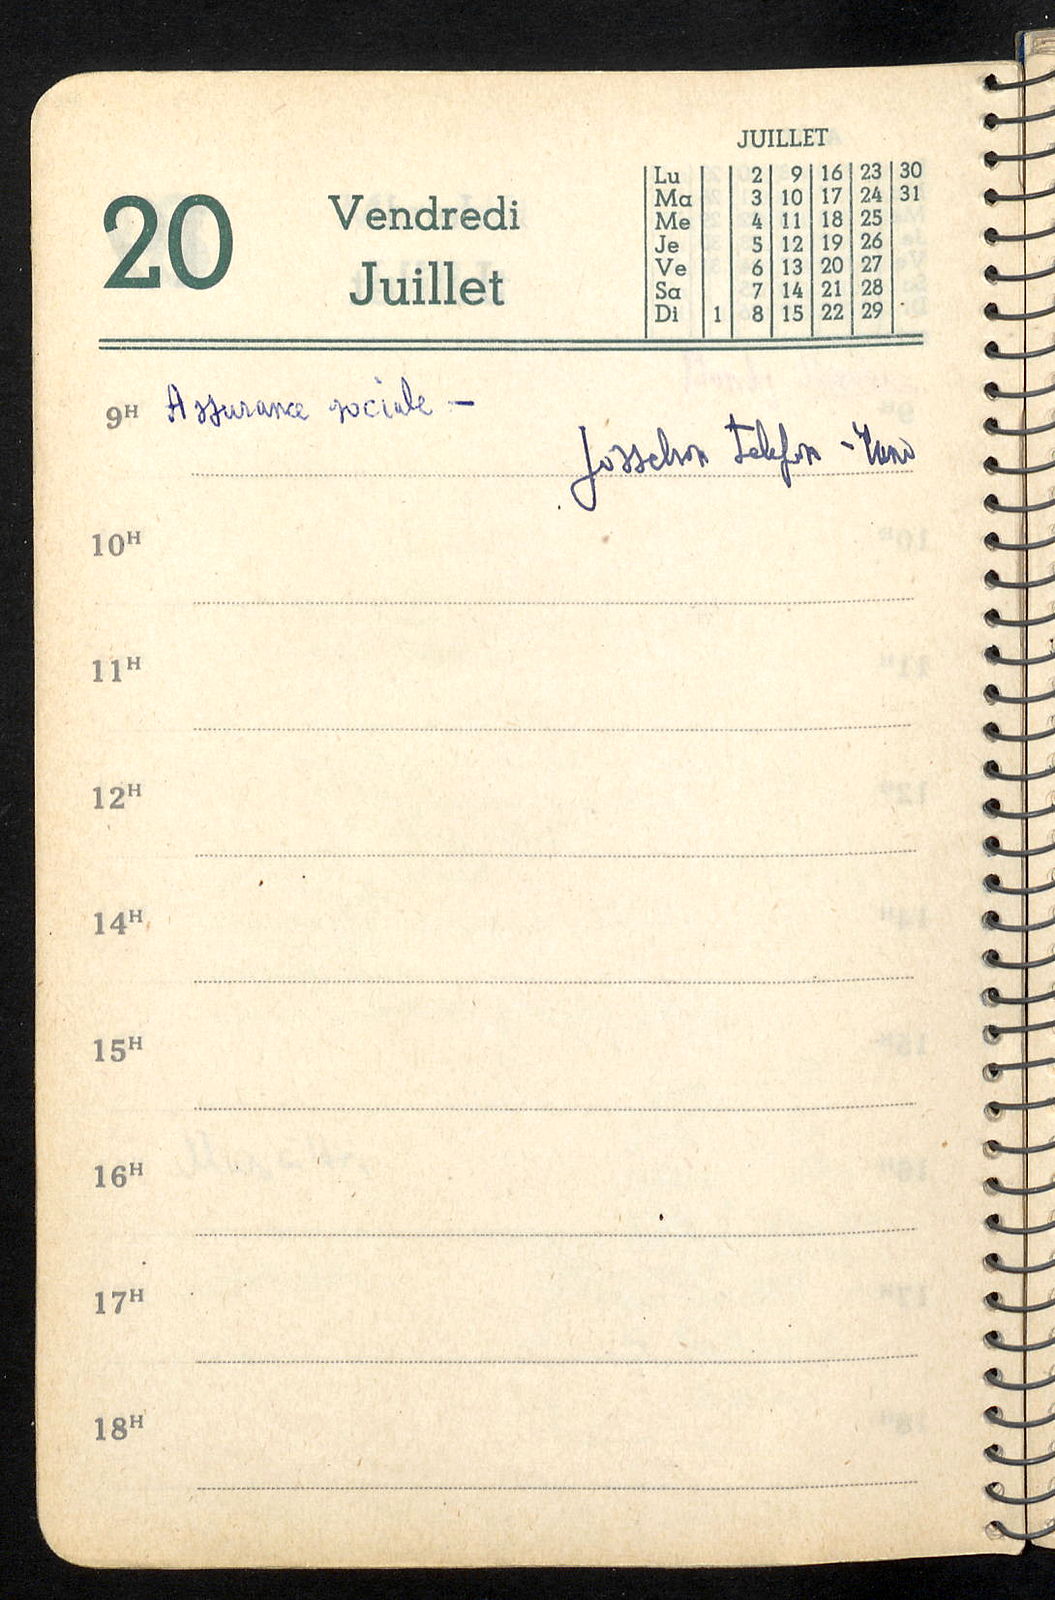 JUILLET
20 Vendredi
Juillet
Lu 2 9 16 23 30
Ma 3 10 17 24 31
Me 4 11 18 25
Je 5 12 19 26
Ve 6 13 20 27
Sa 7 14 21 28
Di 1 8 15 22 29
9H Assurance sociale —
Josselson telefon -
10H
11H
12H
14H
15H
16H
17H
18H